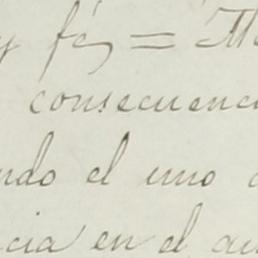 y fé, = M
consecuenc
ndo el uno
cia en el au